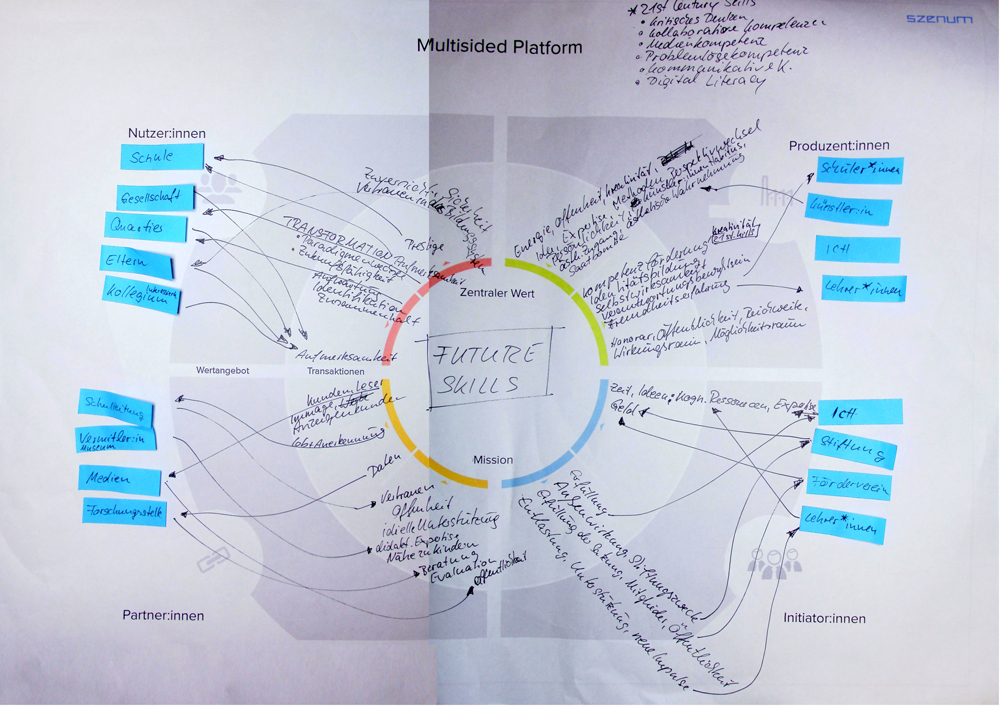 * 21st Century Skills
• Kritisches Denken
• Kollaborative Kompetenzen
• Medienkompetenz
• Problemlösekompetenz
• Kommunikative K.
• Digital Literacy
szenum
Multisided Platform
Nutzer:innen
Schule
Gesellschaft
Quartiers
Eltern
Kollegium
Produzent:innen
Schüler*innen
Künstler:in
ICH
Lehrer*innen
Zuversicht, Sicherheit
Vertrauen in das Bildungssystem
Prestige
TRANSFORMATION
• Paradigmenwechsel
• Zukunftsfähigkeit
Identifikation
Zusammenhalt
Aufmerksamkeit
Energie, Offenheit, Kreativität,
Ideen, Expertise, Methoden, Perspektivwechsel
Persönlichkeit, Künstler:innen Habitus,
ästhetische Wahrnehmung
Kompetenzförderung
Kreativität
21st Skills
Identitätsbildung
Selbstwirksamkeit
Verantwortungsbewusstsein
Fremdheitserfahrung
Honorar, Öffentlichkeit, Reichweite,
Wirkungsraum, Möglichkeitsraum
Zentraler Wert
FUTURE
SKILLS
Mission
Wertangebot
Transaktionen
Kunden, Leser
Immage,
Anzeigenkunden
Lob + Anerkennung
Daten
Vertrauen
Offenheit
idielle Unterstützung
didakt. Expertise
Nähe zu Kindern
Beratung
Evaluation
Öffentlichkeit
Zeit, Ideen, Kogn. Ressourcen, Expertise
Geld
Erfüllung
Außenwirkung, Stiftungszweck
Erfüllung der Satzung, Mitglieder, Öffentlichkeit
Entlastung, Unterstützung, neue Impulse
Schulleitung
Vermittler:in
Museum
Medien
Forschungsstelle
Partner:innen
ICH
Stiftung
Förderverein
Lehrer*innen
Initiator:innen